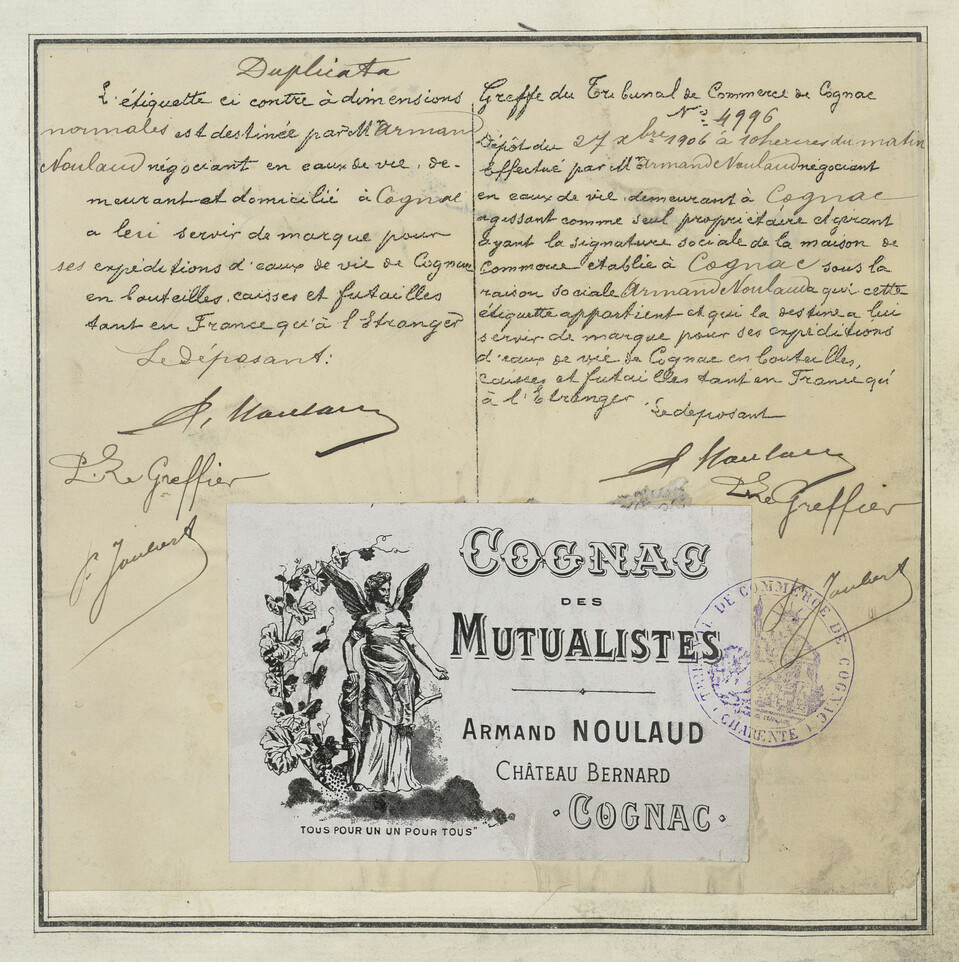 Duplicata
L'étiquette ci contre à dimensions
normales est destinée par Mr Armand
Noulaud négociant en eaux de vie, de-
meurant et domicilié à Cognac
a lui servir de marque pour
ses expéditions d'eaux de vie de Cognac
en bouteilles, caisses et futailles
tant en France qu'à l'Etranger
Le déposant:
A. Noulaud
P. Le Greffier
P. Joubert
Greffe du Tribunal de Commerce de Cognac
No: 4996
Dépôt du 27 Xbre 1906 à 10 heures du matin
Effectué par Mr Armand Noulaud négociant
en eaux de vie, demeurant à Cognac
agissant comme seul propriétaire et gérant
ayant la signature sociale de la maison de
Commerce établie à Cognac sous la
raison sociale Armand Noulaud a qui cette
étiquette appartient et qui la destine a lui
servir de marque pour ses expéditions
d'eaux de vie de Cognac en bouteilles,
caisses et futailles tant en France qu'
à l'Etranger. Le déposant
A. Noulaud
P. Le Greffier
P. Joubert
COGNAC
DES
MUTUALISTES
ARMAND NOULAUD
CHÂTEAU BERNARD
·COGNAC·
TOUS POUR UN UN POUR TOUS"
TRIBUNAL DE COMMERCE DE COGNAC
(CHARENTE)